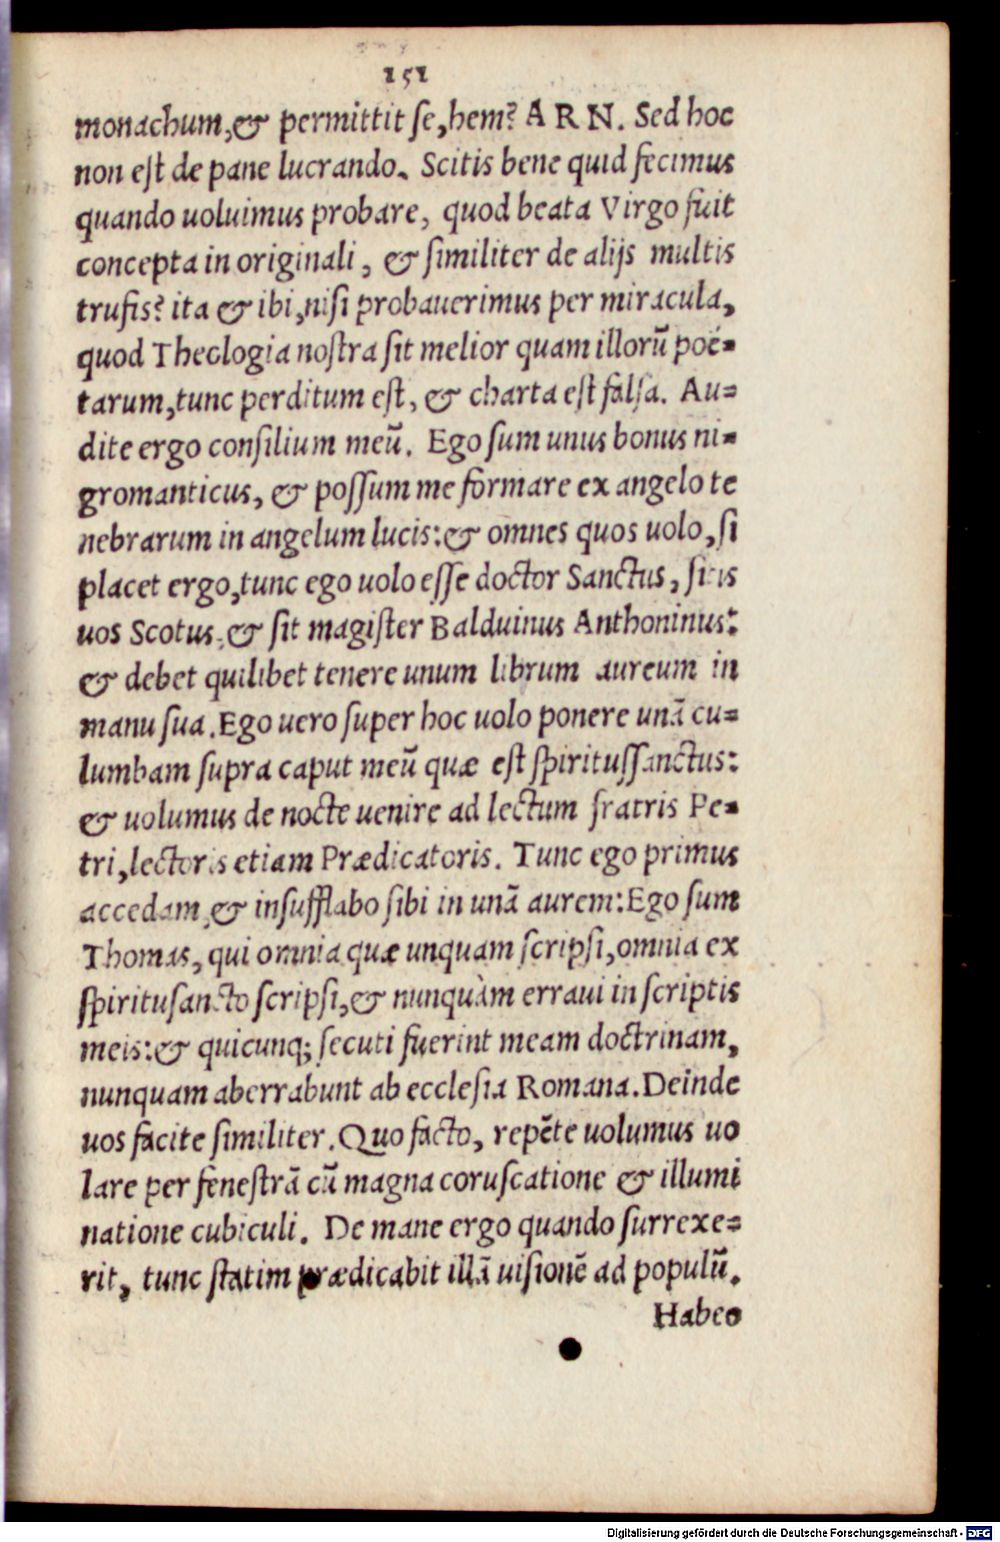 151
monachum,& permittit se,hem? A R N. Sed hoc
non est de pane lucrando. Scitis bene quid fecimus
quando uoluimus probare, quod beata Virgo fuit
concepta in originali, & similiter de alijs multis
trufis? ita & ibi,nisi probauerimus per miracula,
quod Theologia nostra sit melior quam illorū poë=
tarum,tunc perditum est, & charta est falsa. Au=
dite ergo consilium meū. Ego sum unus bonus ni=
gromanticus, & possum me formare ex angelo te
nebrarum in angelum lucis:& omnes quos uolo,si
placet ergo,tunc ego uolo esse doctor Sanctus, sitis
uos Scotus,& sit magister Balduinus Anthoninus:
& debet quilibet tenere unum librum aureum in
manu sua.Ego uero super hoc uolo ponere unā cu=
lumbam supra caput meū quæ est spiritussanctus:
& uolumus de nocte uenire ad lectum fratris Pe=
tri,lectoris etiam Prædicatoris. Tunc ego primus
accedam,& insufflabo sibi in unā aurem:Ego sum
Thomas, qui omnia quæ unquam scripsi,omnia ex
spiritusancto scripsi,& nunquàm erraui in scriptis
meis:& quicunq; secuti fuerint meam doctrinam,
nunquam aberrabunt ab ecclesia Romana.Deinde
uos facite similiter.Quo facto, repēte uolumus uo
lare per fenestrā cū magna coruscatione & illumi
natione cubiculi. De mane ergo quando surrexe=
rit, tunc statim prædicabit illā uisionē ad populū.
Habeo
Digitalisierung gefördert durch die Deutsche Forschungsgemeinschaft - DFG